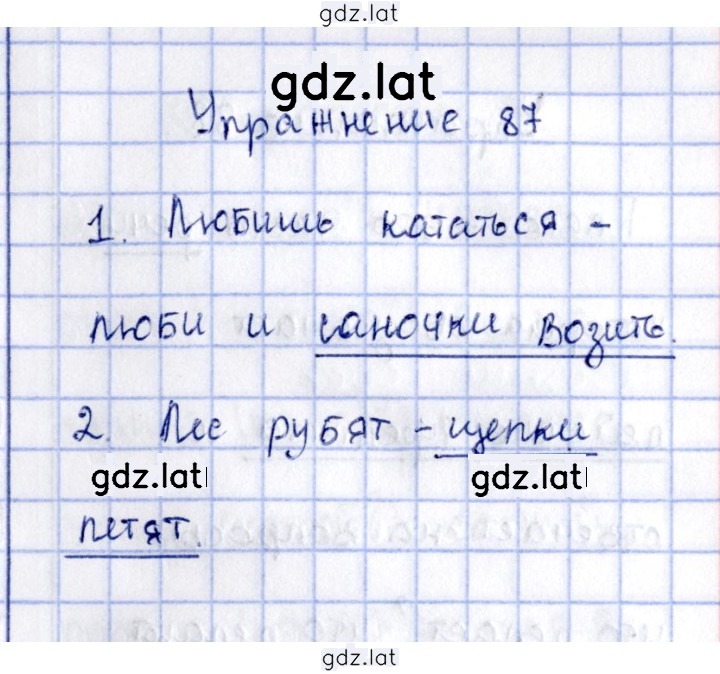 gdz.lat
gdz.lat
Упражнение 87
1. Любишь кататься -
люби и саночки возить.
2. Лес рубят - щепки
gdz.lat gdz.lat
летят.
gdz.lat